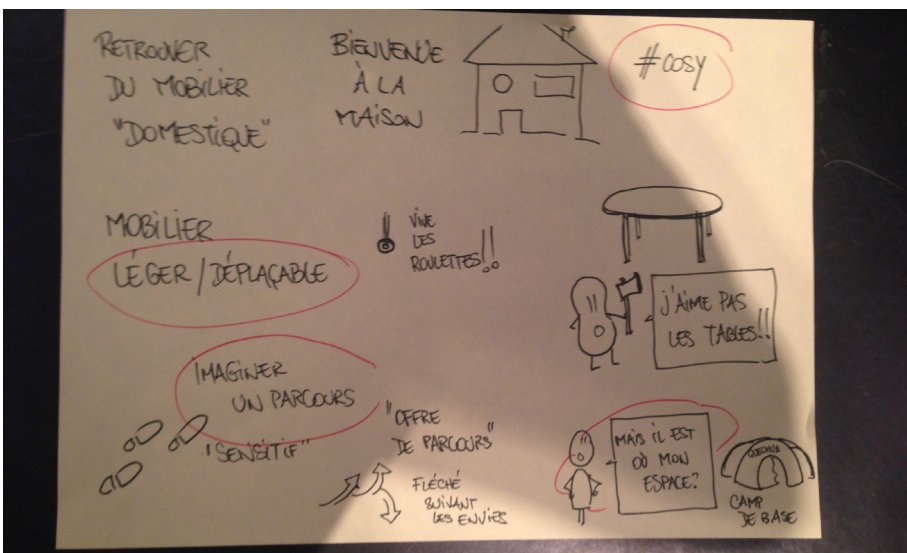 RETROUVER
DU MOBILIER
"DOMESTIQUE"
BIENVENUE
À LA
MAISON
#COSY
MOBILIER
LÉGER/DÉPLAÇABLE
VIVE
LES
ROULETTES!!
J'AIME PAS
LES TABLES!!
IMAGINER
UN PARCOURS
"SENSITIF"
"OFFRE
DE PARCOURS"
FLÉCHÉ
SUIVANT
LES ENVIES
MAIS IL EST
OÙ MON
ESPACE?
QUECHUA
CAMP
DE BASE